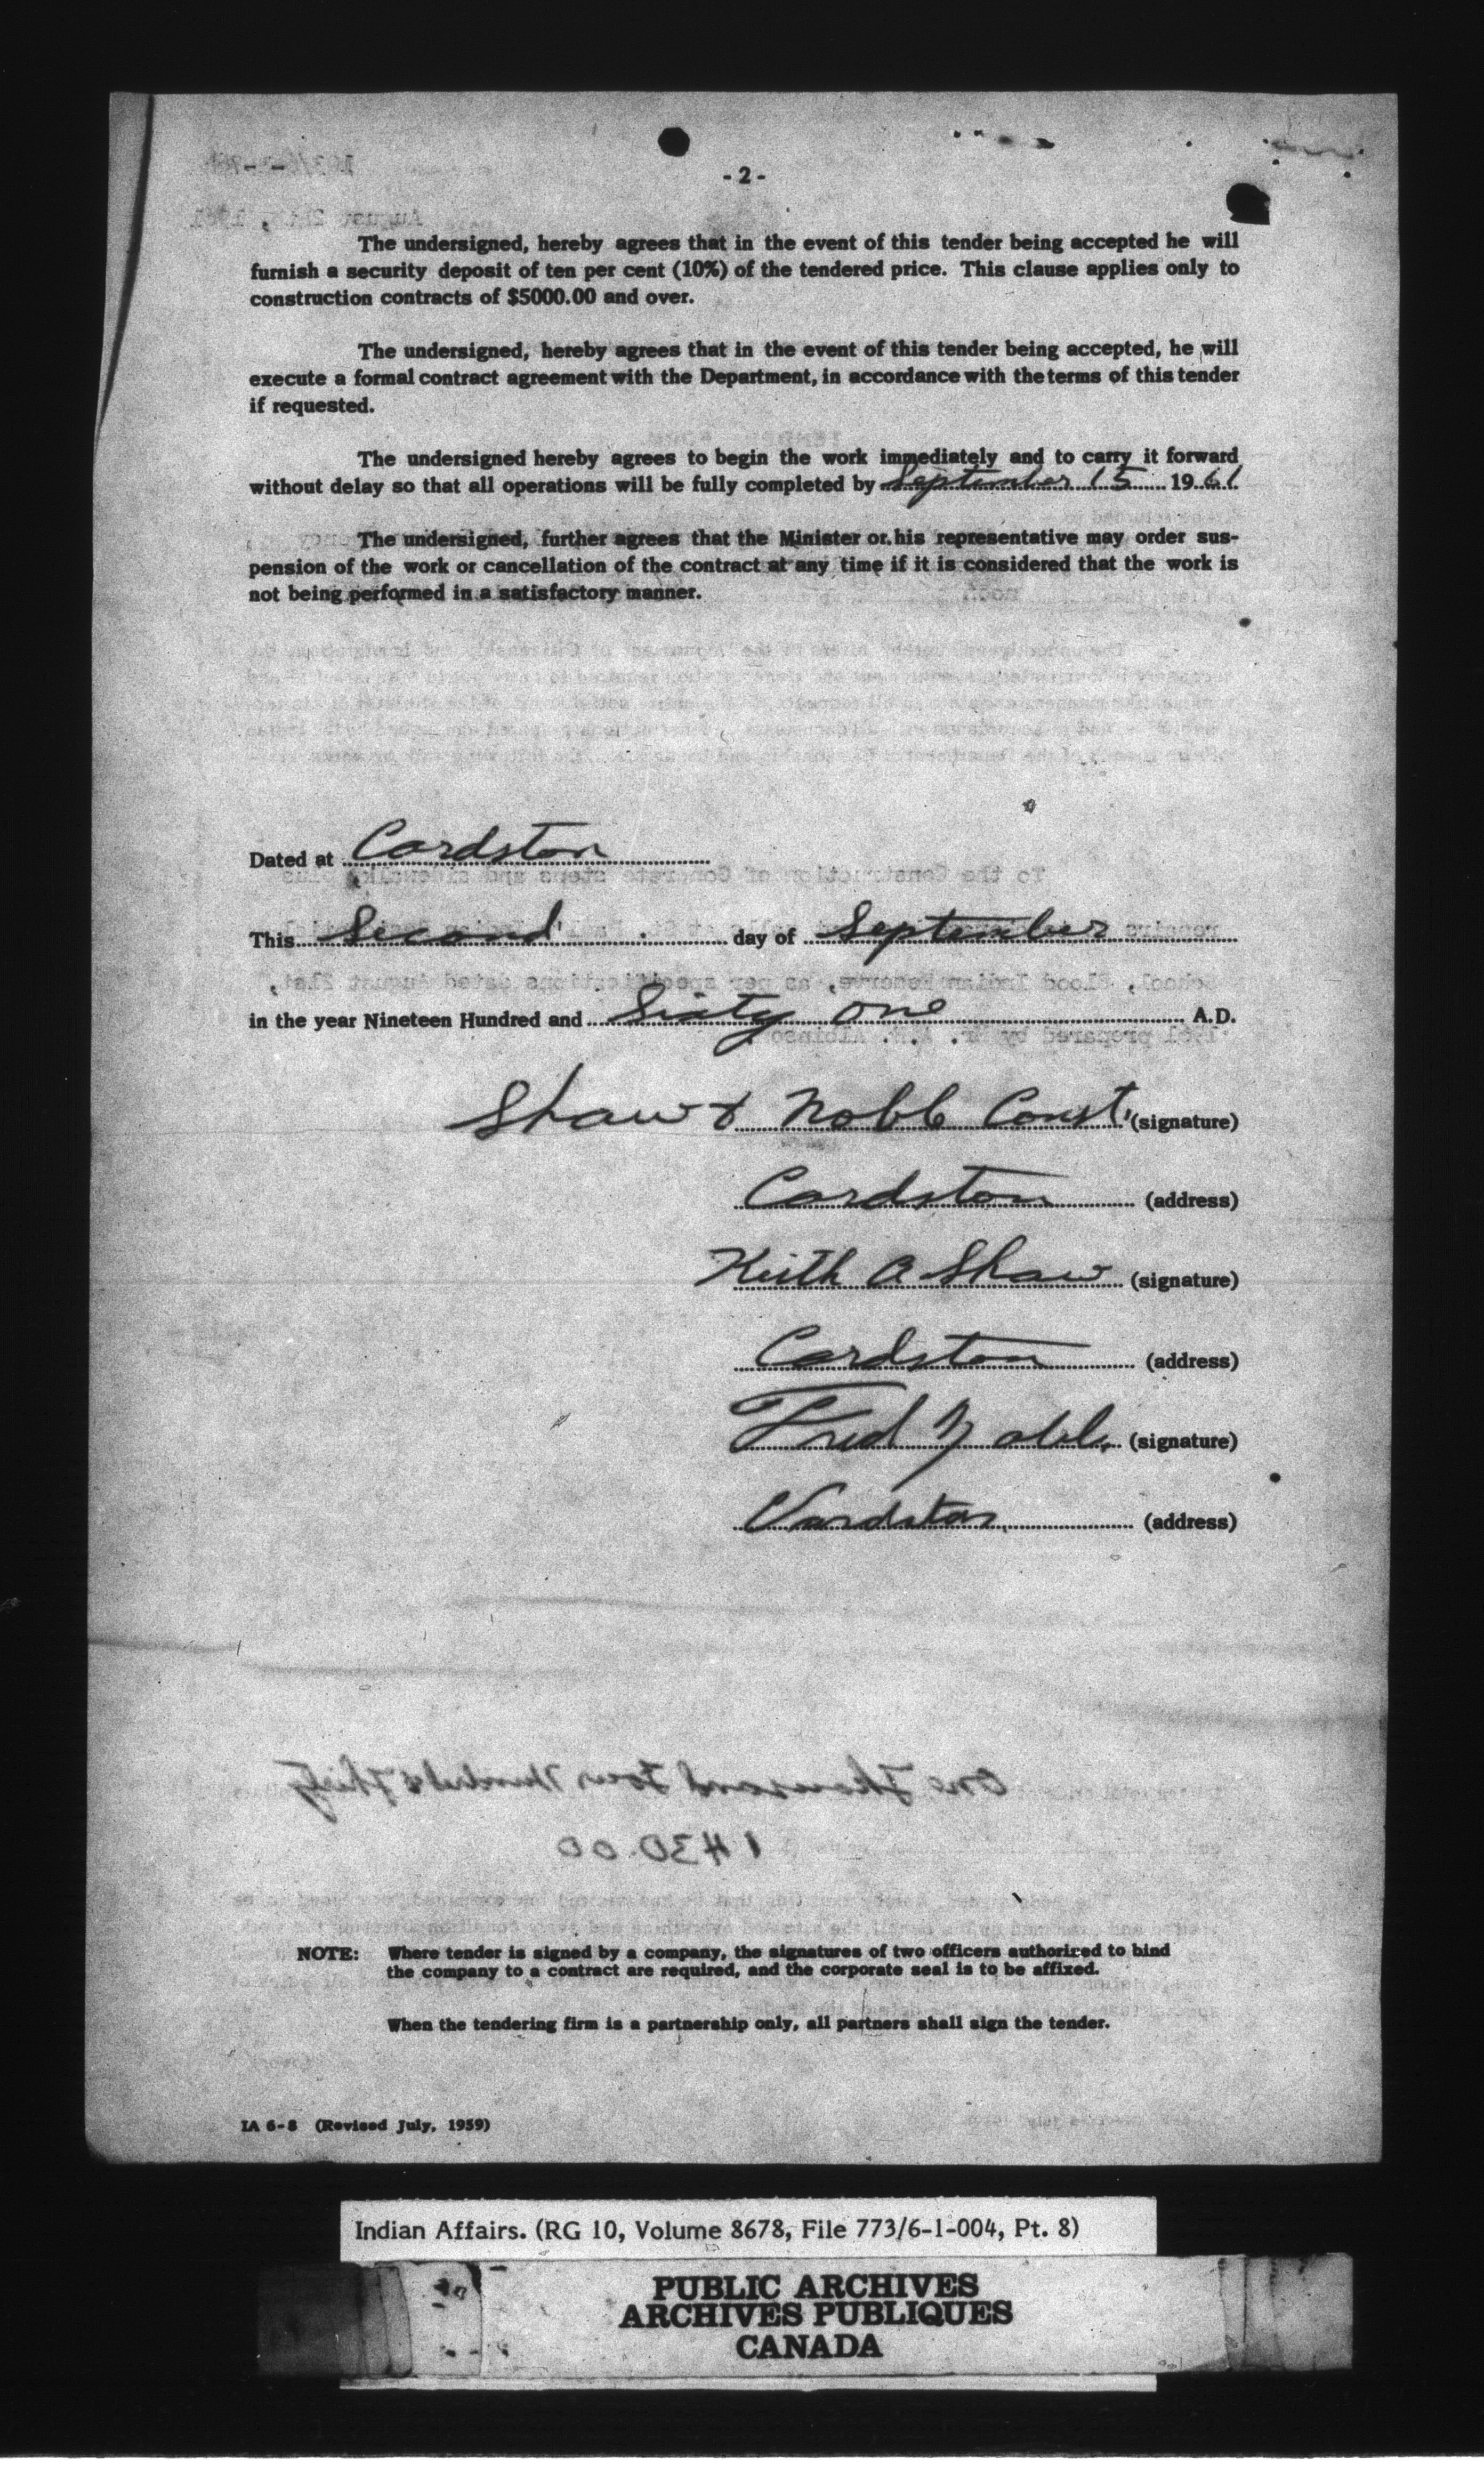 - 2 -
The undersigned, hereby agrees that in the event of this tender being accepted he will
furnish a security deposit of ten per cent (10%) of the tendered price. This clause applies only to
construction contracts of $5000.00 and over.
The undersigned, hereby agrees that in the event of this tender being accepted, he will
execute a formal contract agreement with the Department, in accordance with the terms of this tender
if requested.
The undersigned hereby agrees to begin the work immediately and to carry it forward
without delay so that all operations will be fully completed by September 15 1961
The undersigned, further agrees that the Minister or his representative may order sus-
pension of the work or cancellation of the contract at any time if it is considered that the work is
not being performed in a satisfactory manner.
Dated at Cardston
This Second day of September
in the year Nineteen Hundred and Sixty One A.D.
Shaw & Nobb Const. (signature)
Cardston (address)
Keith A Shaw (signature)
Cardston (address)
Fred (signature)
Cardston (address)
One Thousand Four Hundred & Thirty
1430.00
NOTE: Where tender is signed by a company, the signatures of two officers authorized to bind
the company to a contract are required, and the corporate seal is to be affixed.
When the tendering firm is a partnership only, all partners shall sign the tender.
IA 6-8 (Revised July, 1959)
Indian Affairs. (RG 10, Volume 8678, File 773/6-1-004, Pt. 8)
PUBLIC ARCHIVES
ARCHIVES PUBLIQUES
CANADA